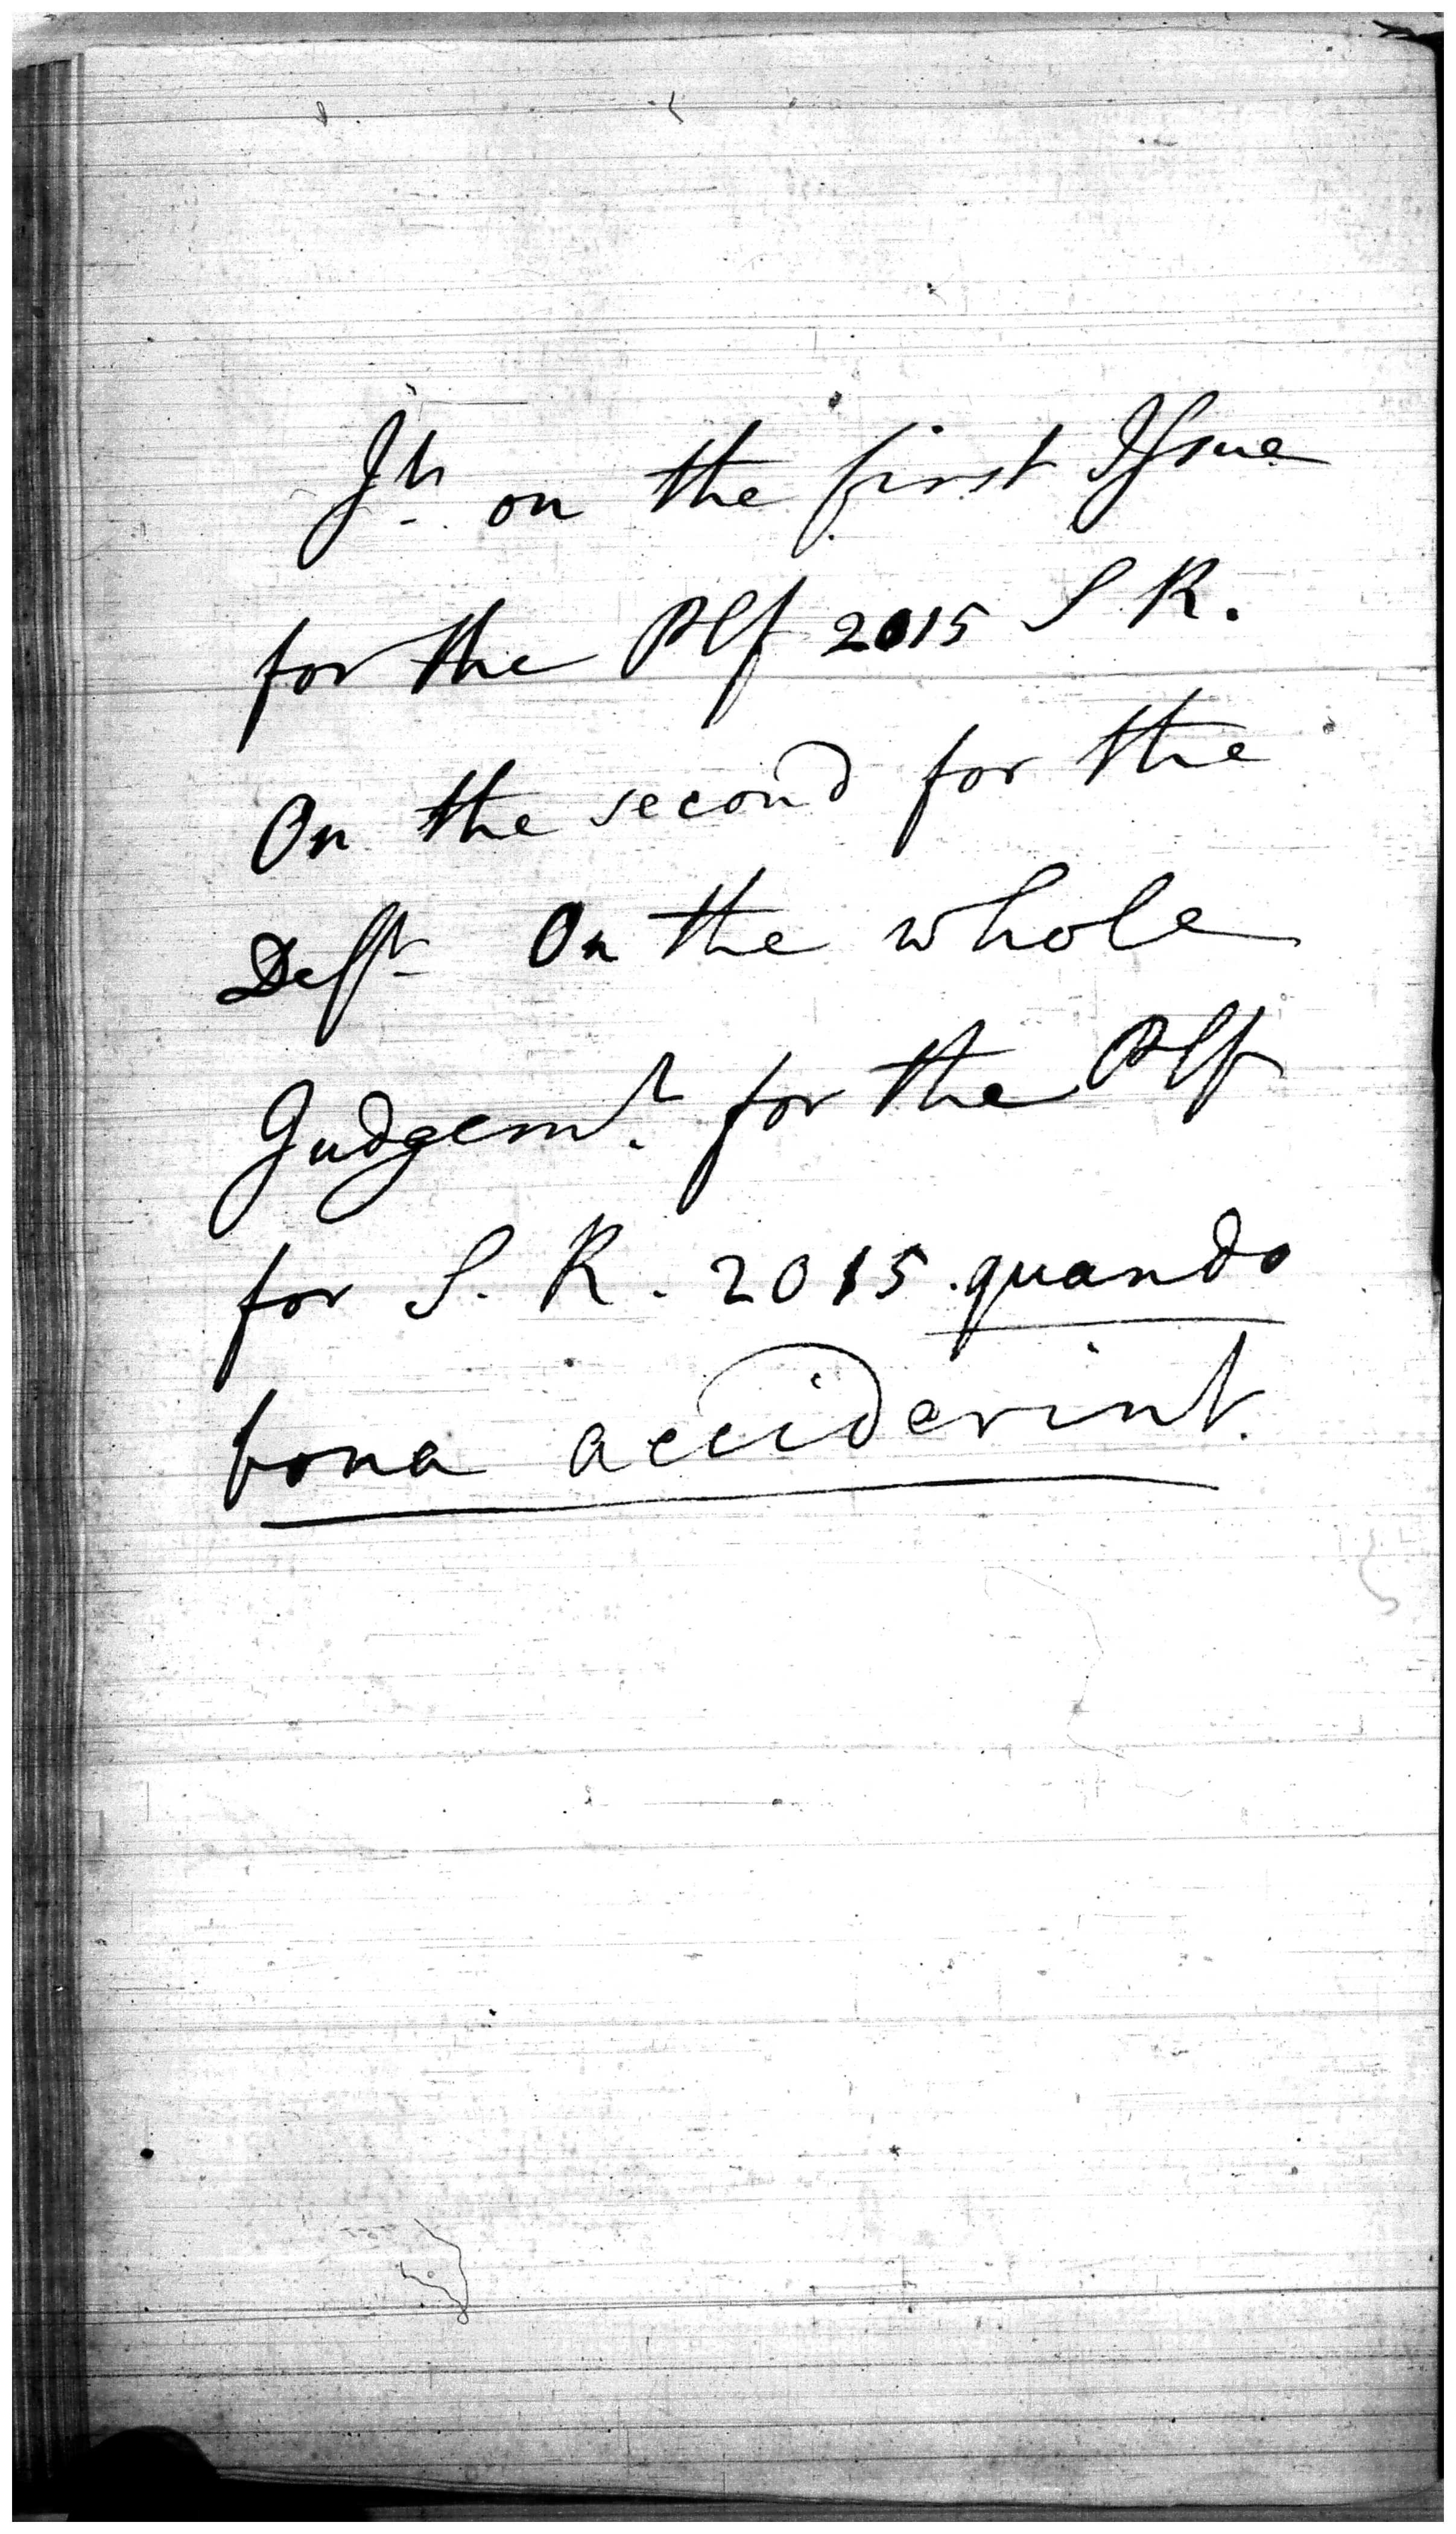 Jt. on the first Issue
for the Plf 2015 S R.
On the second for the
Deft. On the whole
Judgemt. for the Plf
for S. R. 2015 quando
bona acciderint.